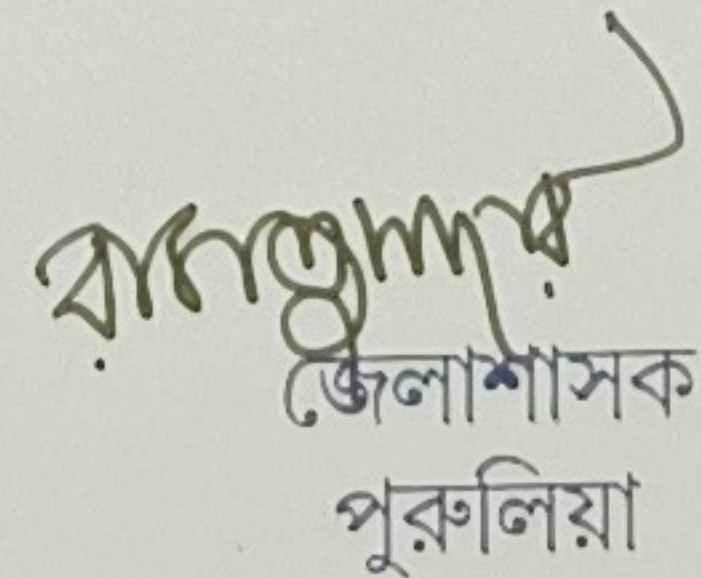 জেলাশাসক
পুরুলিয়া